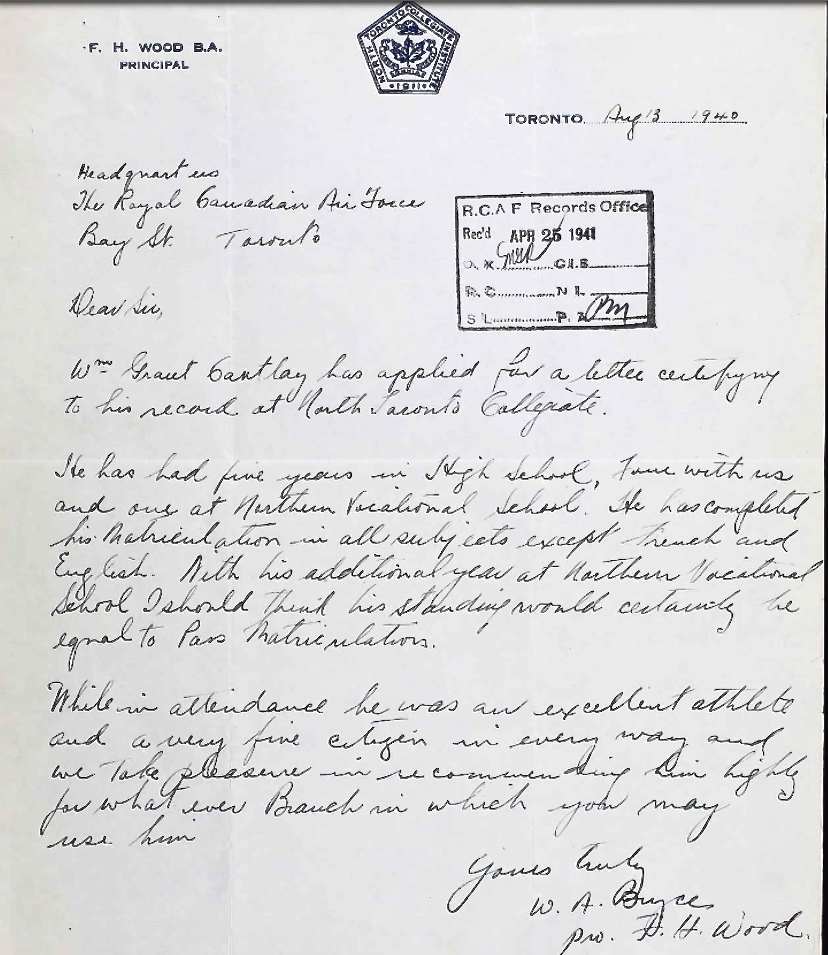 F. H. WOOD B.A.
PRINCIPAL
NORTH TORONTO COLLEGIATE INSTITUTE
1911
TORONTO Aug 13 1940
Headquarters
The Royal Canadian Air Force
Bay St. Toronto
R.C.A F Records Office
Rec'd APR 25 1941
C.I.S.
R.C. N I.
S L. P.
Dear Sir,
Wm Grant Cantlay has applied for a letter certifying
to his record at North Toronto Collegiate.
He has had five years in High School, Four with us
and one at Northern Vocational School. He has completed
his Matriculation in all subjects except French and
English. With his additional year at Northern Vocational
School I should think his standing would certainly be
equal to Pass Matriculation.
While in attendance he was an excellent athlete
and a very fine citizen in every way and
we take pleasure in recommending him highly
for what ever Branch in which you may
use him
Yours truly
W. A. Bryce
pro. F. H. Wood.